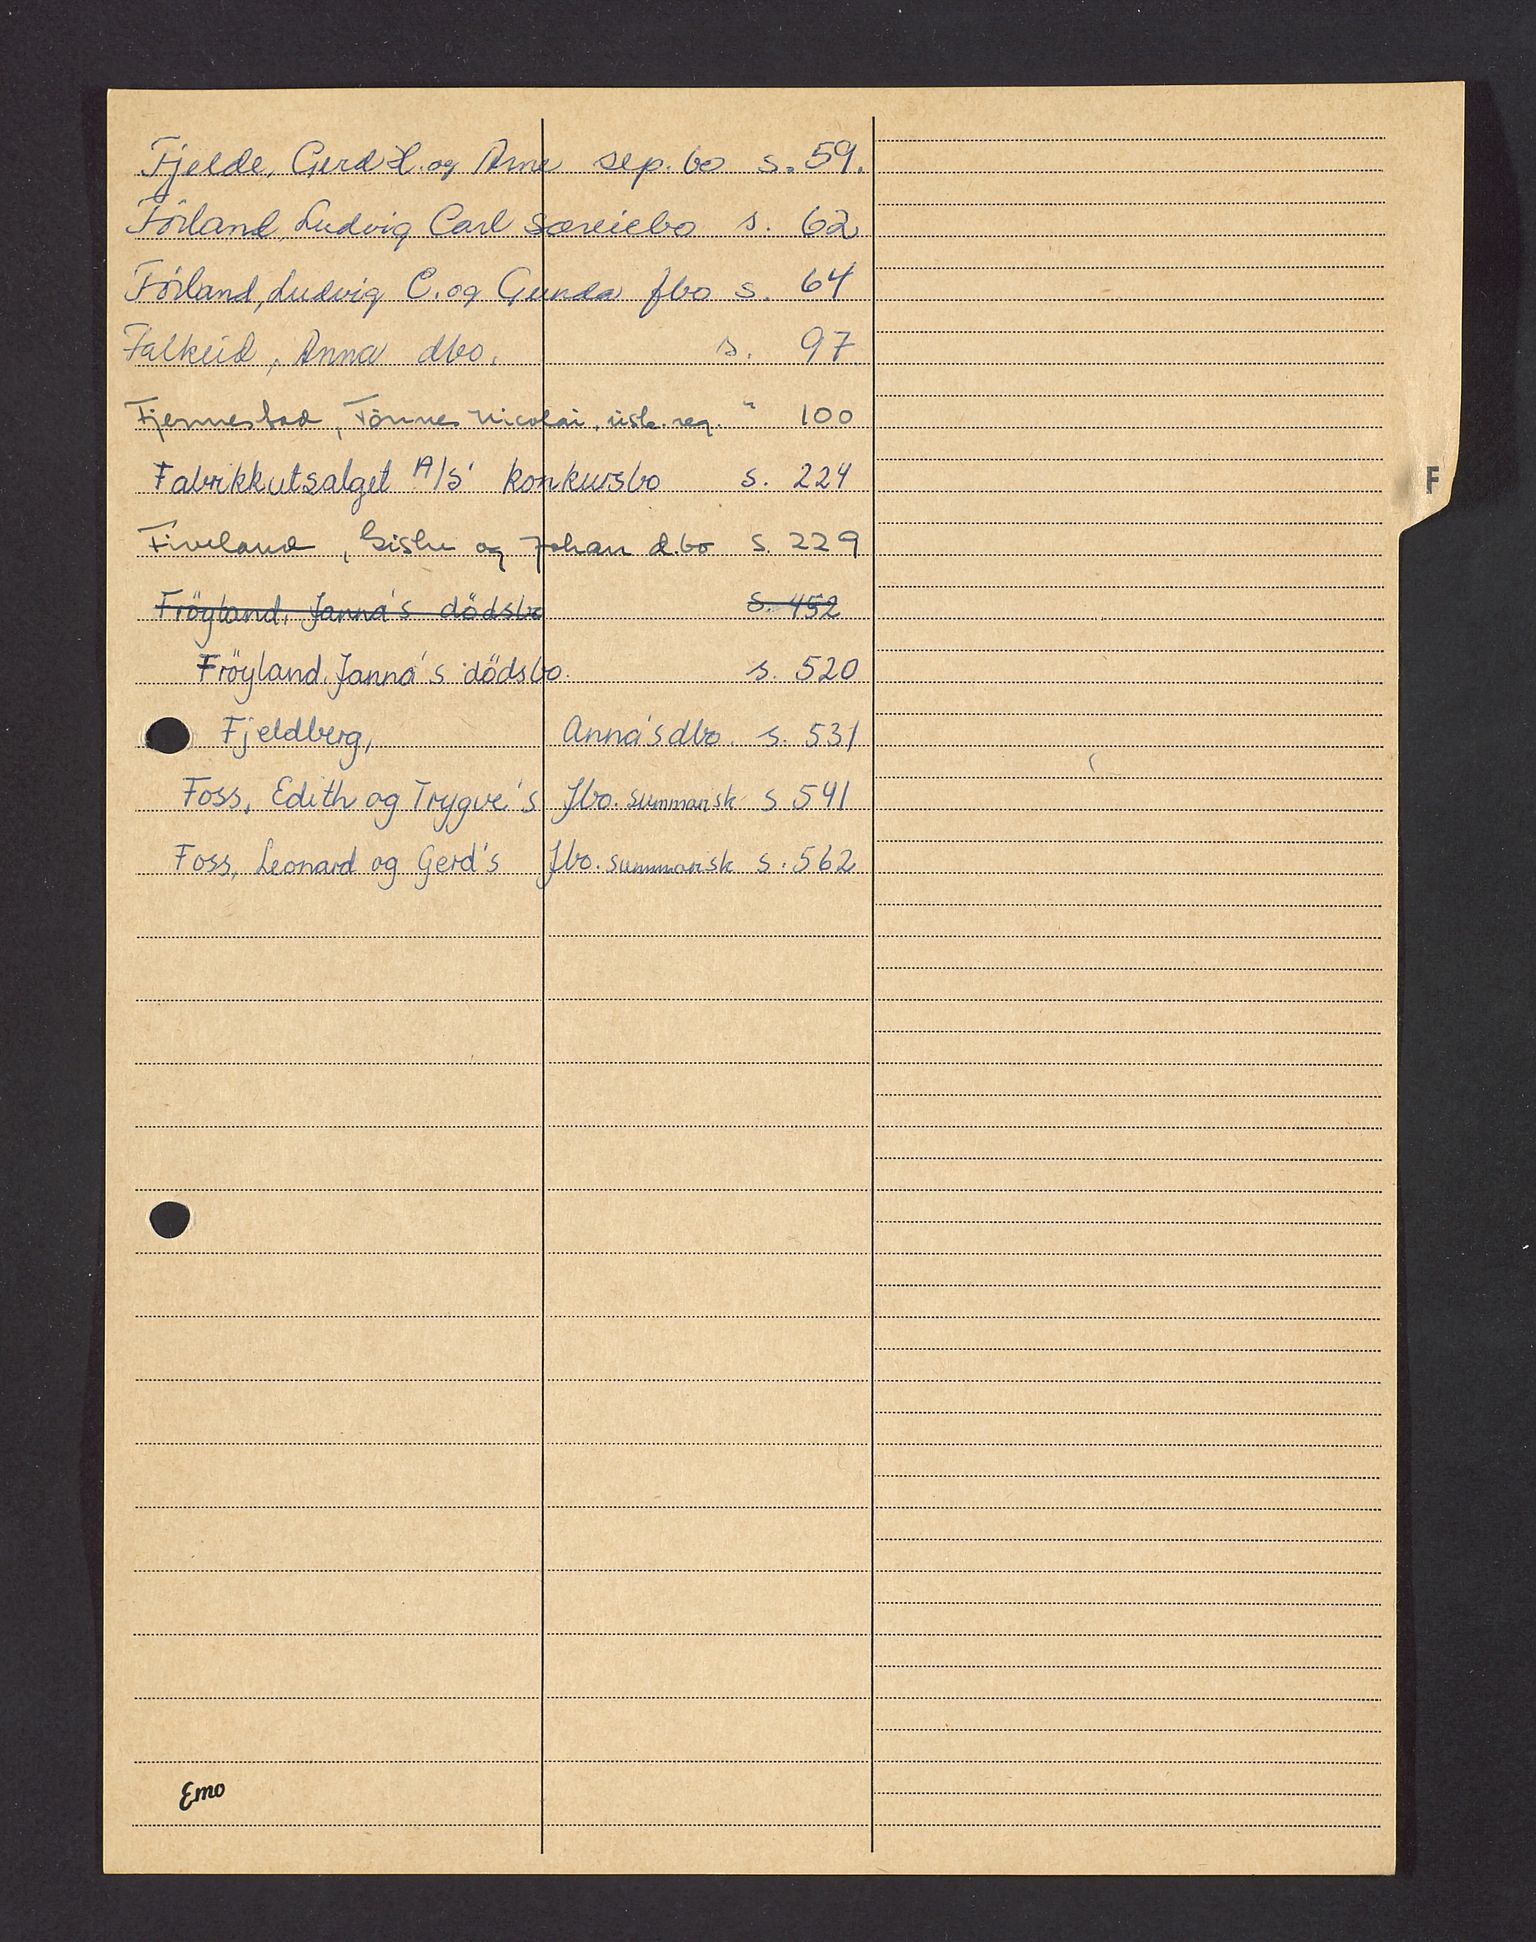 Fjelde, Gerd H. og Arne sep. bo s. 59.
Förland, Ludvig Carl særeiebo s. 62
Förland, Ludvig C. og Gunda fbo s. 64
Falkeid, Anna dbo. s. 97
Fjermestad, Tönnes Nicolai, reg. " 100
Fabrikkutsalget A/S' konkursbo s. 224
F
Fiveland, og Johan d.bo s. 229
Fröyland, Janna's dödsbo s. 452
Fröyland, Janna's dödsbo. s. 520
Fjeldberg, Anna's dbo. s. 531
Foss, Edith og Trygve's fbo. summarisk s 541
Foss, Leonard og Gerd's fbo. summarisk s. 562
Emo